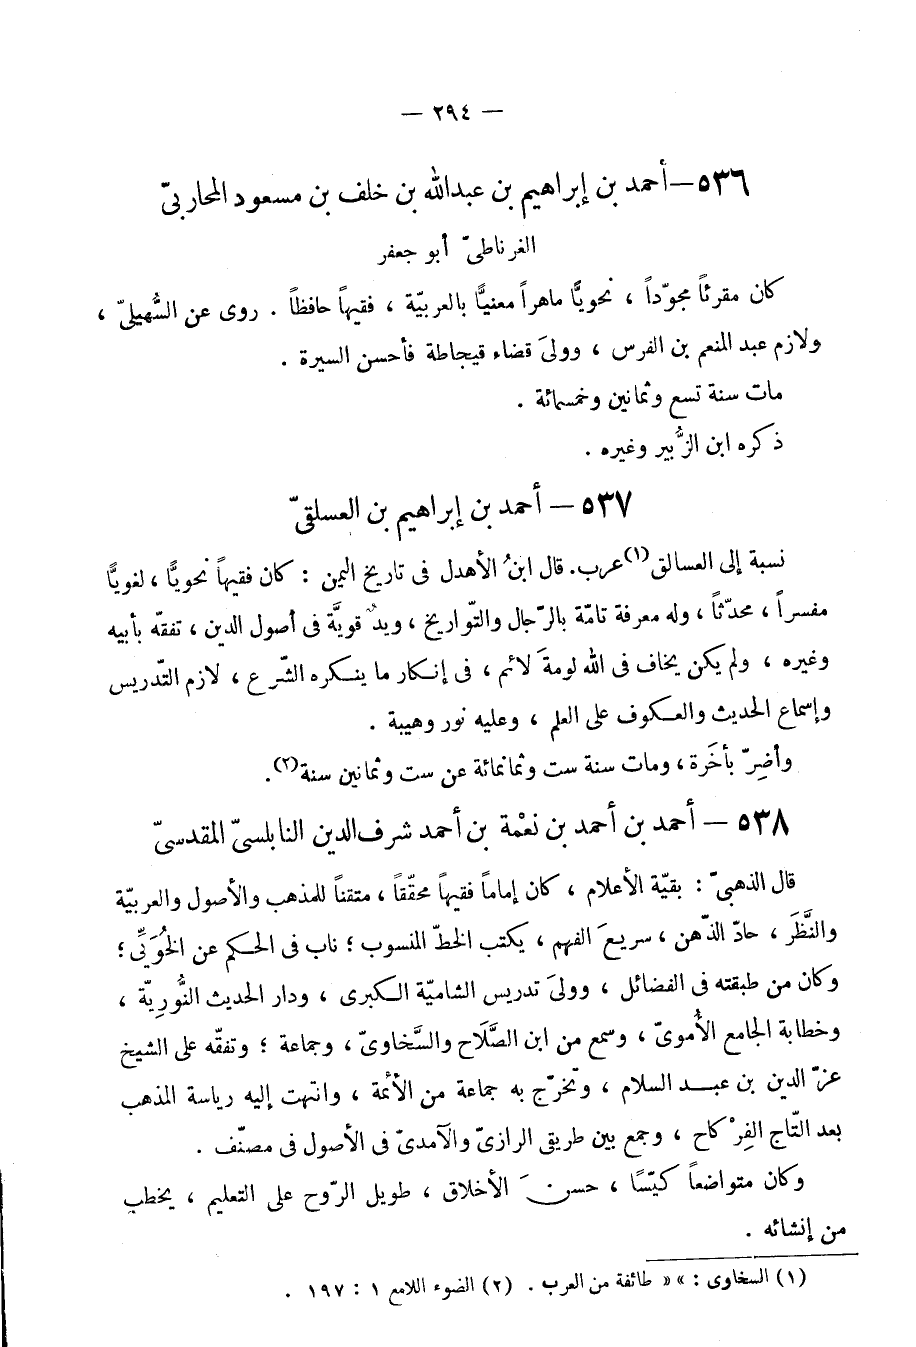 — ٢٩٤ —
٥٣٦ — أحمد بن إبراهيم بن عبدالله بن خلف بن مسعود المحاربىّ
الغرناطىّ أبو جعفر
كان مقرئاً مجوّداً ، نحويًّا ماهراً معنيًّا بالعربيّة ، فقيهاً حافظاً . روى عن السُّهيلىّ ،
ولازم عبد المنعم بن الفرس ، وولىَ قضاء قيجاطة فأحسن السيرة .
مات سنة تسع وثمانين وخمسمائة .
ذكره ابن الزُّبير وغيره .
٥٣٧ — أحمد بن إبراهيم بن العسلقىّ
نسبة إلى العسالق(١) عرب. قال ابنُ الأهدل فى تاريخ اليمن : كان فقيهاً نحويًّا ، لغويًّا
مفسراً ، محدّثاً ، وله معرفة تامّة بالرّجال والتّواريخ ، ويدٌ قويّة فى أصول الدين ، تفقّه بأبيه
وغيره ، ولم يكن يخاف فى الله لومةَ لائم ، فى إنكار ما ينكره الشّرع ، لازم التّدريس
وإسماع الحديث والعكوف على العلم ، وعليه نور وهيبة .
وأضِرّ بأخَرة ، ومات سنة ست وثمانمائة عن ست وثمانين سنة(٢).
٥٣٨ — أحمد بن أحمد بن نعْمة بن أحمد شرف الدين النابلسىّ المقدسىّ
قال الذهبىّ : بقيّة الأعلام ، كان إماماً فقيهاً محقّقاً ، متقناً للمذهب والأصول والعربيّة
والنَّظَر ، حادّ الذّهن ، سريعَ الفهم ، يكتب الخطّ المنسوب ؛ ناب فى الحكم عن الخُوَيِّى ؛
وكان من طبقته فى الفضائل ، وولىَ تدريس الشاميّة الكبرى ، ودار الحديث النُّوريّة ،
وخطابة الجامع الأُموىّ ، وسمع من ابن الصَّلَاح والسَّخاوىّ ، وجماعة ؛ وتفقّه على الشيخ
عزّ الدين بن عبد السلام ، وتخرّج به جماعة من الأئمة ، وانتهت إليه رياسة المذهب
بعد التّاج الفِرْكاح ، وجمع بين طريقى الرازىّ والآمدىّ فى الأصول فى مصنّف .
وكان متواضعاً كيّسًا ، حسنَ الأخلاق ، طويل الرّوح على التعليم ، يخطب
من إنشائه .
(١) السخاوى : « طائفة من العرب » . (٢) الضوء اللامع ١ : ١٩٧ .